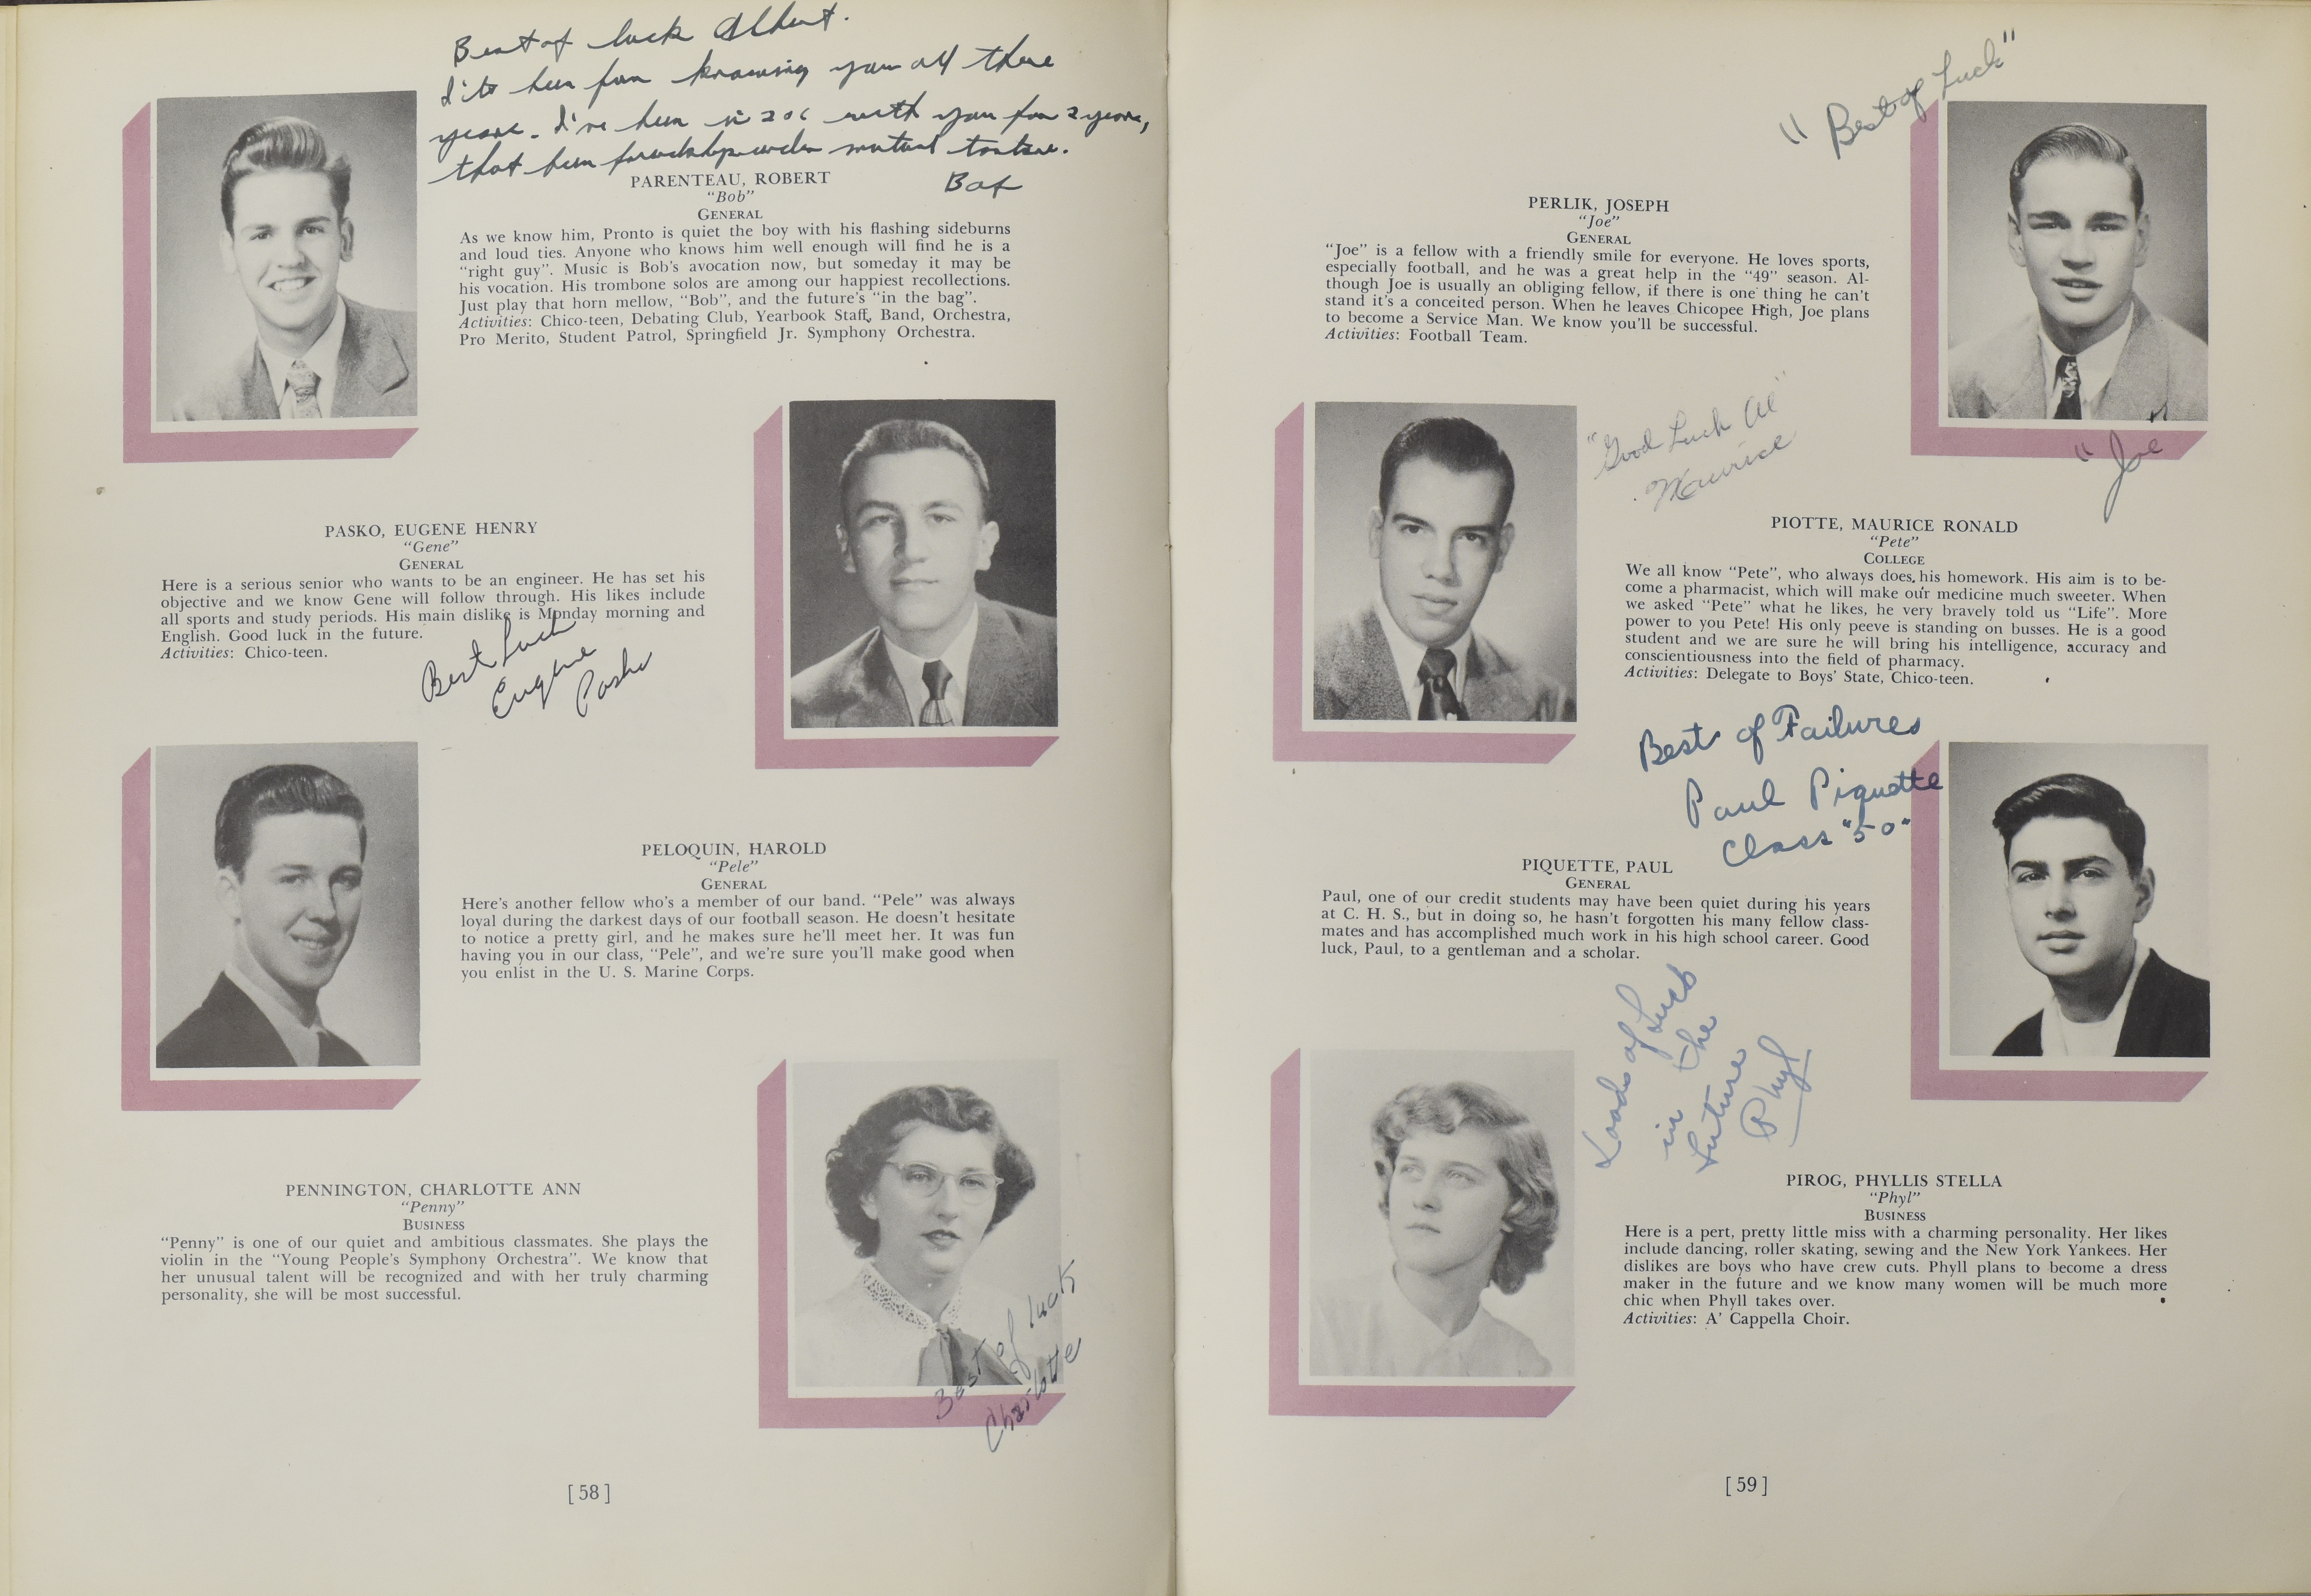 Best of luck Albert.
It's been fun knowing you all these
years. I've been in 206 with you for 2 years,
that been friendship under mutual torture.
Bob
PARENTEAU, ROBERT
“Bob”
GENERAL
As we know him, Pronto is quiet the boy with his flashing sideburns
and loud ties. Anyone who knows him well enough will find he is a
“right guy”. Music is Bob's avocation now, but someday it may be
his vocation. His trombone solos are among our happiest recollections.
Just play that horn mellow, “Bob”, and the future's “in the bag”.
Activities: Chico-teen, Debating Club, Yearbook Staff, Band, Orchestra,
Pro Merito, Student Patrol, Springfield Jr. Symphony Orchestra.
PASKO, EUGENE HENRY
“Gene”
GENERAL
Here is a serious senior who wants to be an engineer. He has set his
objective and we know Gene will follow through. His likes include
all sports and study periods. His main dislike is Monday morning and
English. Good luck in the future.
Activities: Chico-teen.
Best Luck
Eugene
Pasko
PELOQUIN, HAROLD
“Pele”
GENERAL
Here's another fellow who's a member of our band. “Pele” was always
loyal during the darkest days of our football season. He doesn't hesitate
to notice a pretty girl, and he makes sure he'll meet her. It was fun
having you in our class, “Pele”, and we're sure you'll make good when
you enlist in the U. S. Marine Corps.
PENNINGTON, CHARLOTTE ANN
“Penny”
BUSINESS
“Penny” is one of our quiet and ambitious classmates. She plays the
violin in the “Young People's Symphony Orchestra”. We know that
her unusual talent will be recognized and with her truly charming
personality, she will be most successful.
Best of luck
Charlotte
[ 58 ]
"Best of Luck"
PERLIK, JOSEPH
“Joe”
GENERAL
“Joe” is a fellow with a friendly smile for everyone. He loves sports,
especially football, and he was a great help in the “49” season. Al-
though Joe is usually an obliging fellow, if there is one thing he can't
stand it's a conceited person. When he leaves Chicopee High, Joe plans
to become a Service Man. We know you'll be successful.
Activities: Football Team.
"Joe"
"Good Luck Al"
Maurice
PIOTTE, MAURICE RONALD
“Pete”
COLLEGE
We all know “Pete”, who always does his homework. His aim is to be-
come a pharmacist, which will make our medicine much sweeter. When
we asked “Pete” what he likes, he very bravely told us “Life”. More
power to you Pete! His only peeve is standing on busses. He is a good
student and we are sure he will bring his intelligence, accuracy and
conscientiousness into the field of pharmacy.
Activities: Delegate to Boys' State, Chico-teen.
Best of Failures
Paul Piquette
Class "50"
PIQUETTE, PAUL
GENERAL
Paul, one of our credit students may have been quiet during his years
at C. H. S., but in doing so, he hasn't forgotten his many fellow class-
mates and has accomplished much work in his high school career. Good
luck, Paul, to a gentleman and a scholar.
Loads of Luck
in the
future
Phyl
PIROG, PHYLLIS STELLA
“Phyl”
BUSINESS
Here is a pert, pretty little miss with a charming personality. Her likes
include dancing, roller skating, sewing and the New York Yankees. Her
dislikes are boys who have crew cuts. Phyll plans to become a dress
maker in the future and we know many women will be much more
chic when Phyll takes over.
Activities: A' Cappella Choir.
[ 59 ]